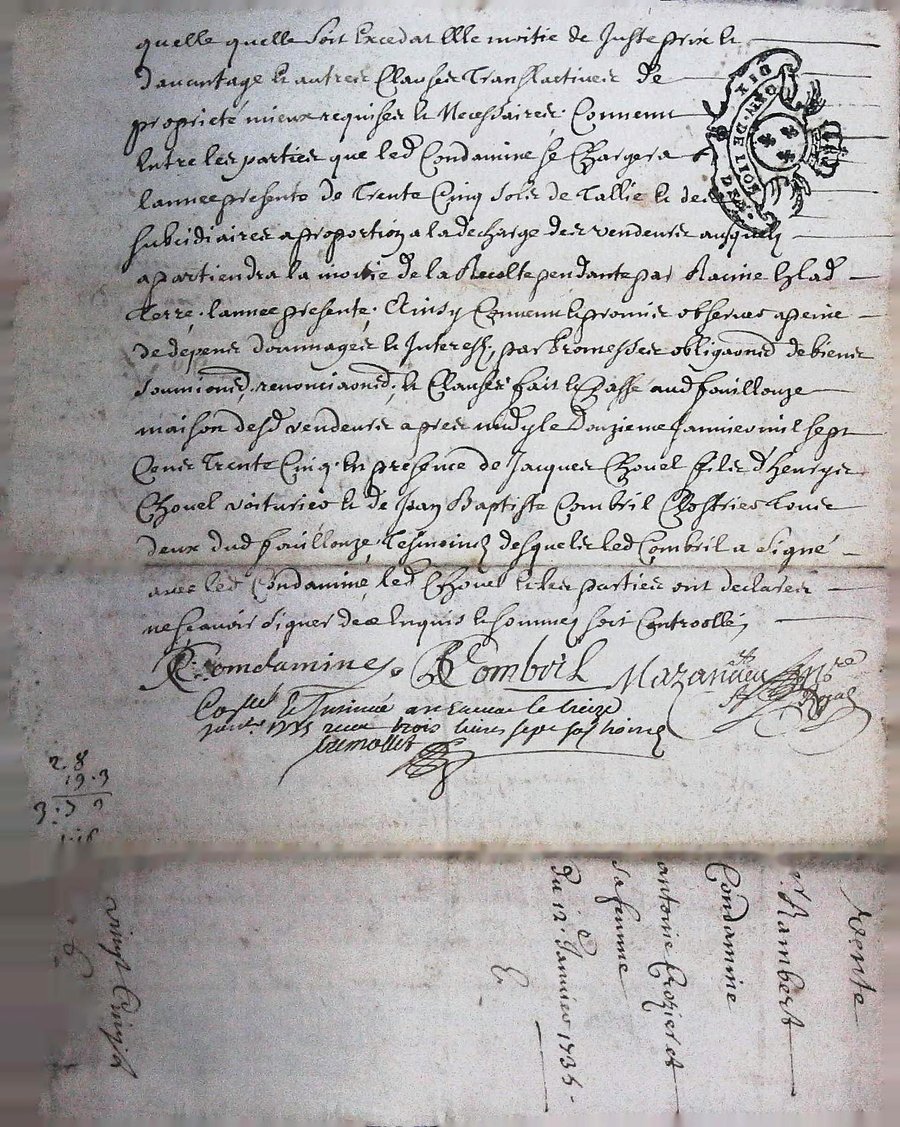 quelle quelle soit Excedat Elle moitie de Juste prix et
davantage et autres Clauses Translactives de
proprieté mieux requises et Necessaires. Convenu
Entre les parties que led Condamine se Chargera
lannee presente de Trente Cinq sols de Tallie et des
subsidiaires a proportion a la decharge des vendeurs ausquels
apartiendra la moitie de la Recolte pendante par Racine
Terre lannee presente. Ainsy Convenu et promis observer a peine
de depens dommages et Interest, par promesses obligaons de biens
soumions, renonciaons, et Clauses fait et Passé aud fouillouze
maison desd vendeurs apres midy le Douzieme Janvier mil sept
Cens Trente Cinq. En presence de Jacques Chovel fils d'
Chovel voiturier et de Jean Baptiste Combril Tous
deux dud fouillouze Tesmoins desquels led Combril a signé
avec led Condamine, led Chovel et les parties ont declarés
ne scavoir signer de ce Enquis et sommes soit Controollé
Condamine. Combril Mazandieu Nre
Royal
Conllé et Insinué le treize
janr 1735 receu trois livres sept sols
tremollet
2. 8
19. 3
3: 7
1:16
vente
Rambert
Condamine
antoine Crozier et
sa femme
du 12e Janvier 1735
vingt Cinq
GEN. DE LION
DIX
DEN.